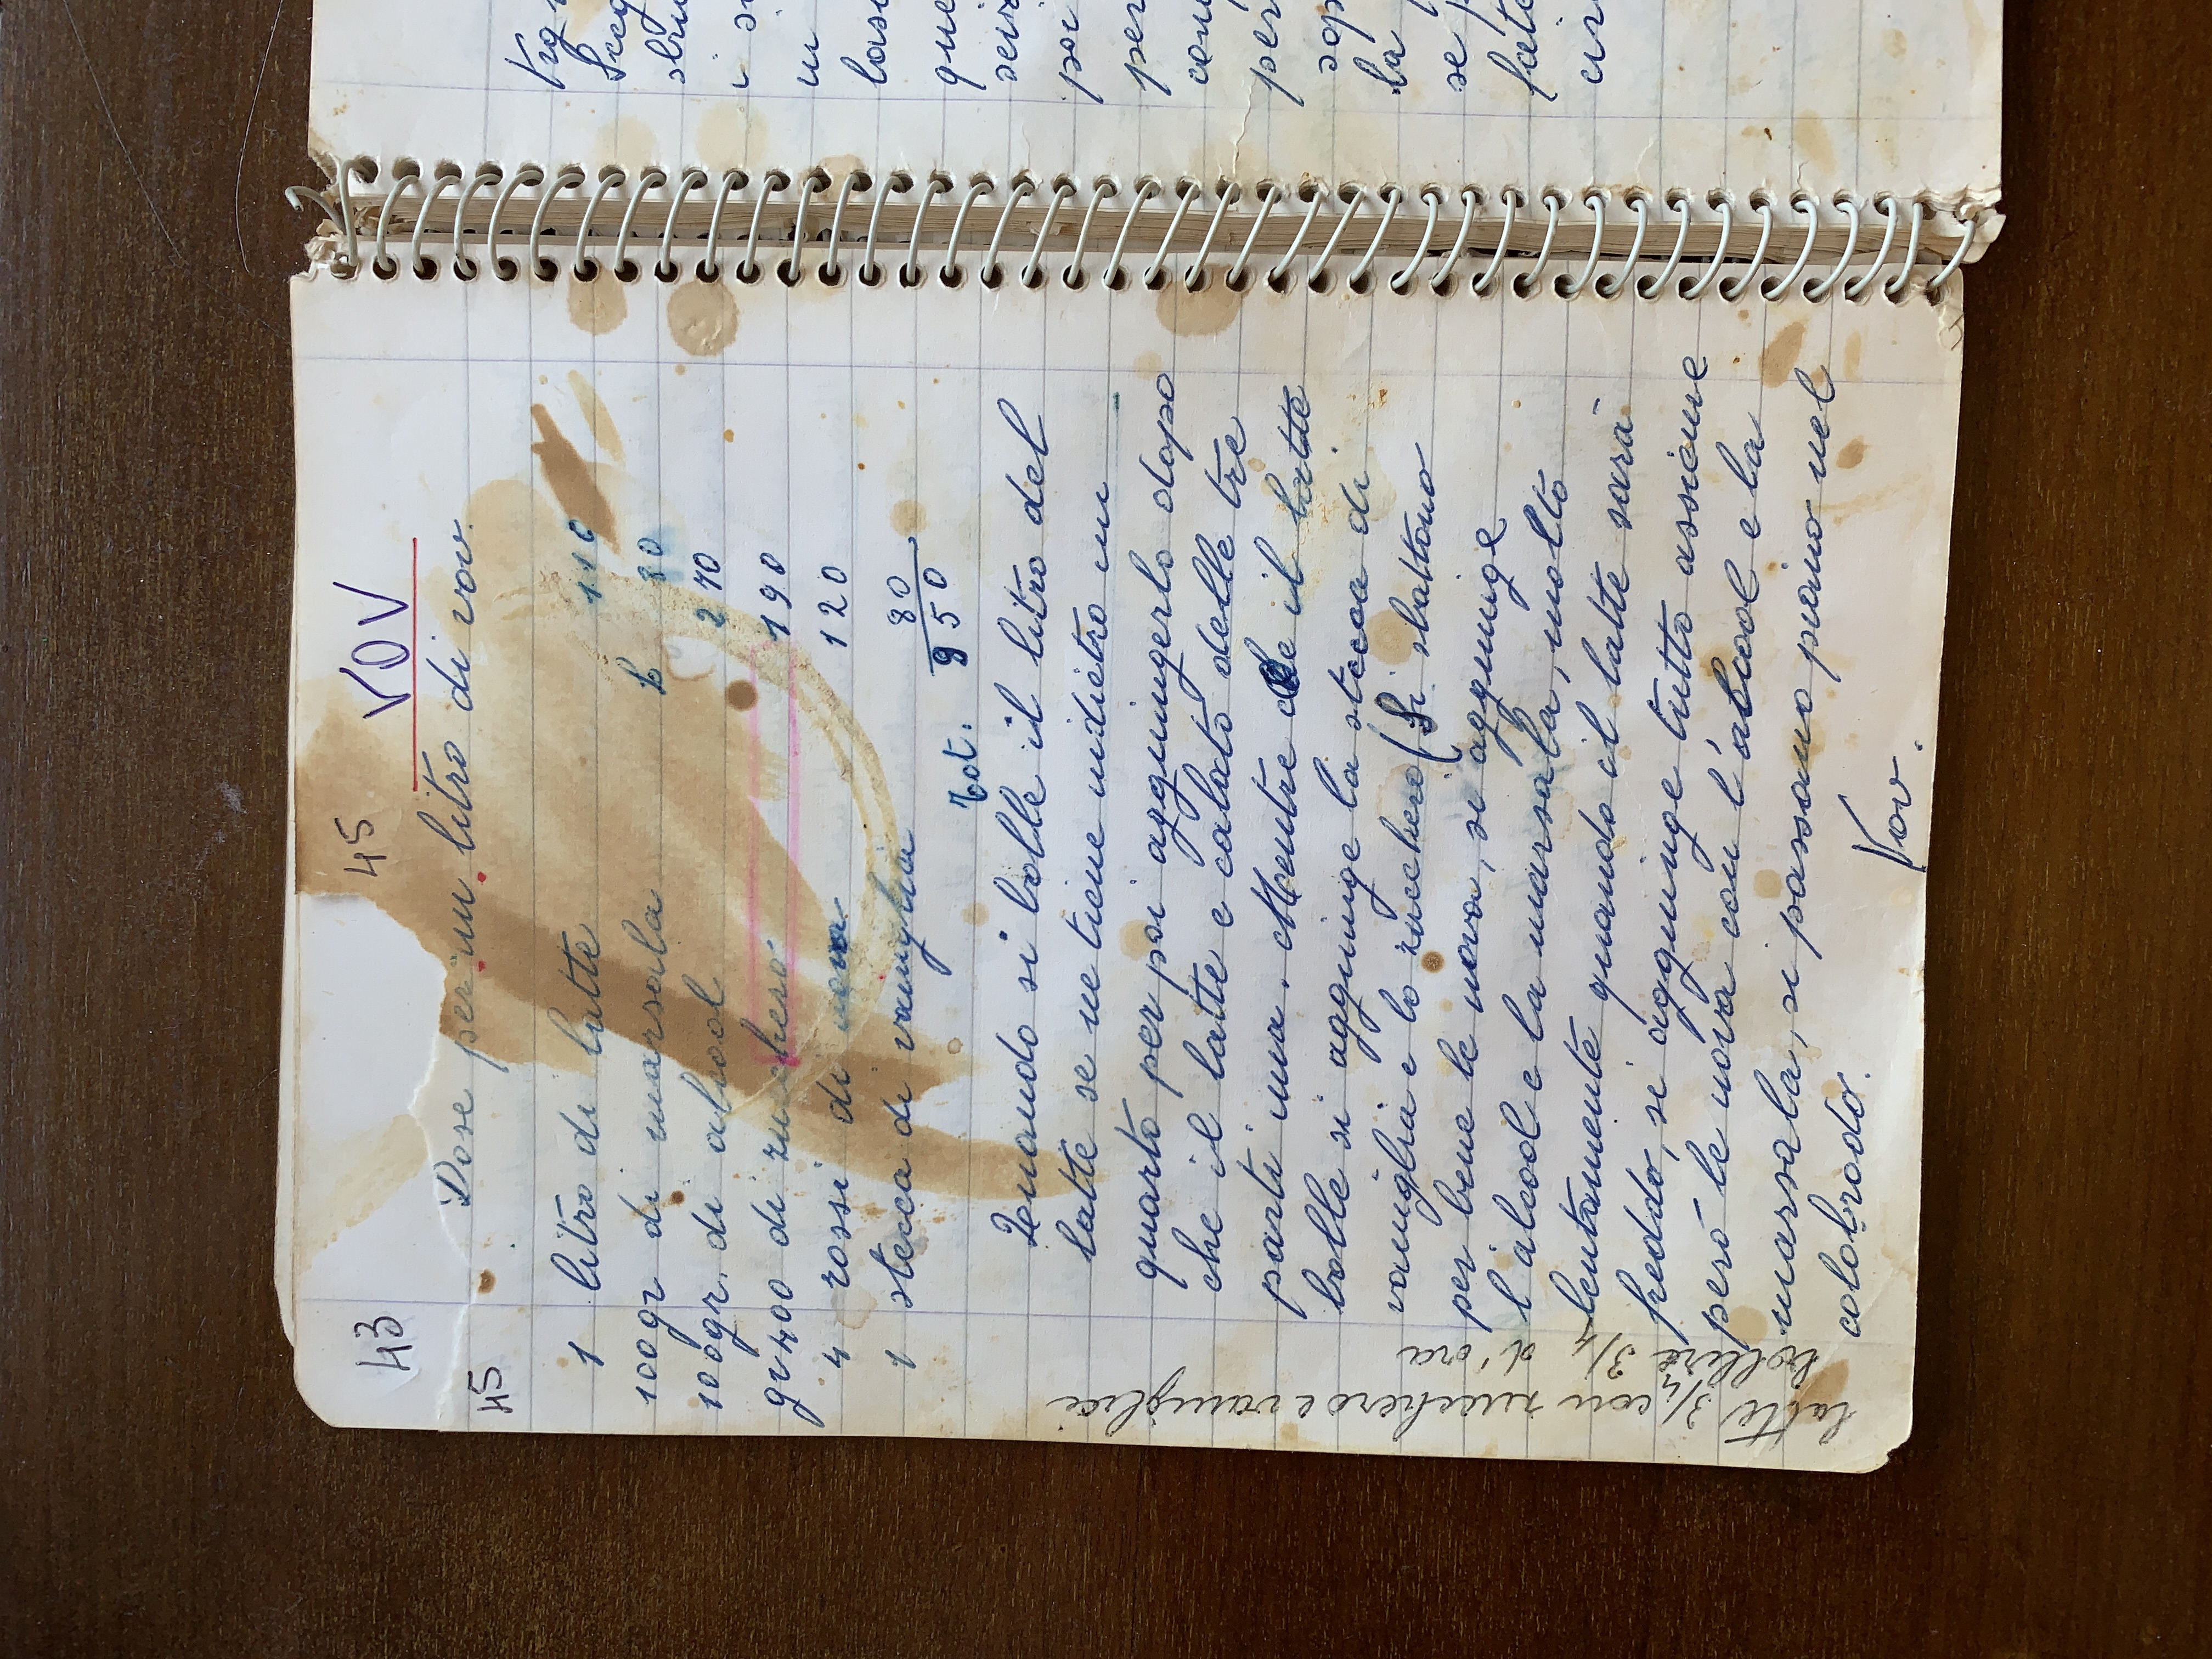 43
45
VOV
Dose per un litro di vov.
45
1 litro di latte 110
100gr di marsala L 80
100gr. di alcool 270
gr 400 di zucchero 190
4 rossi di uova 120
1 stecca di vaniglia 80
Tot. 950
Quando si bolle il litro del
latte se ne tiene indietro un
quarto per poi aggiungerlo dopo
che il latte e calato delle tre
parti una. Mentre che il latte
bolle si aggiunge la stecca di
vaniglia e lo zucchero (Si sbattono
per bene le uova, si aggiunge
l'alcool e la marsala, molto
lentamente quando il latte sarà
freddo, si aggiunge tutto assieme
però le uova con l'alcool e la
marsala, si passano piano nel
colobrodo.
Vov.
latte 3/4 con zucchero e vaniglia
bollire 3/4 d'ora
Kg
i
in
que
poi
per
per
sop
la
se p